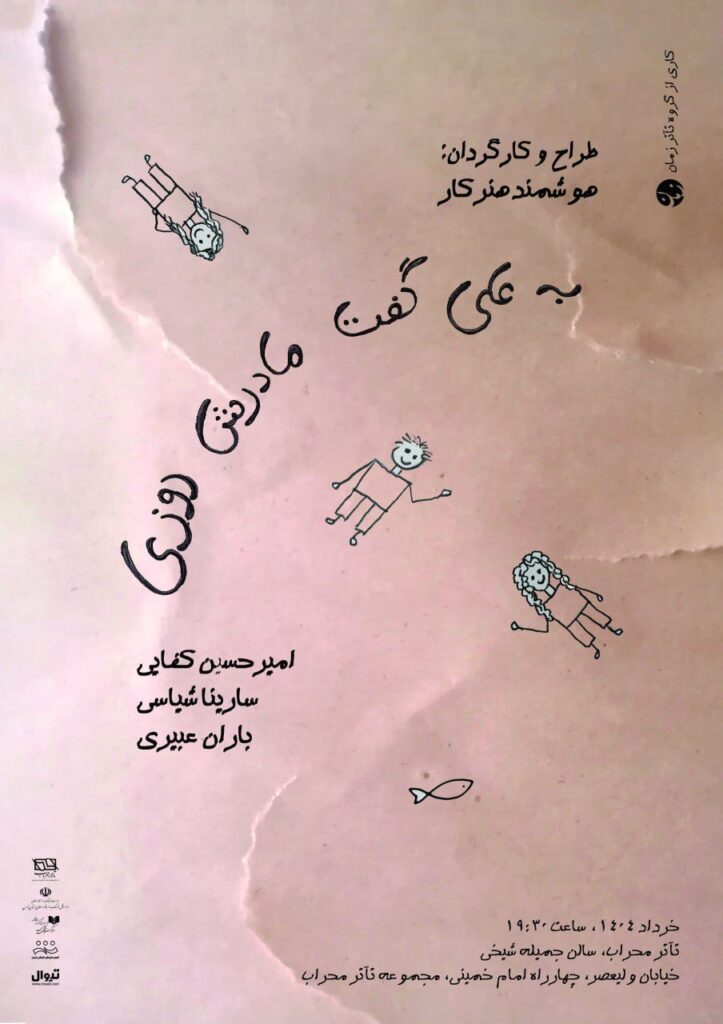 کاری از گروه تئاتر زمان
طراح و کارگردان:
هوشمند هنرکار
به علی گفت مادرش روزی
امیرحسین کفایی
سارینا شیاسی
باران عبیری
خرداد ۱۴۰۴، ساعت ۱۹:۳۰
تآتر محراب، سالن جمیله شیخی
خیابان ولیعصر، چهارراه امام خمینی، مجموعه تآتر محراب
تیوال
www.tiwall.com